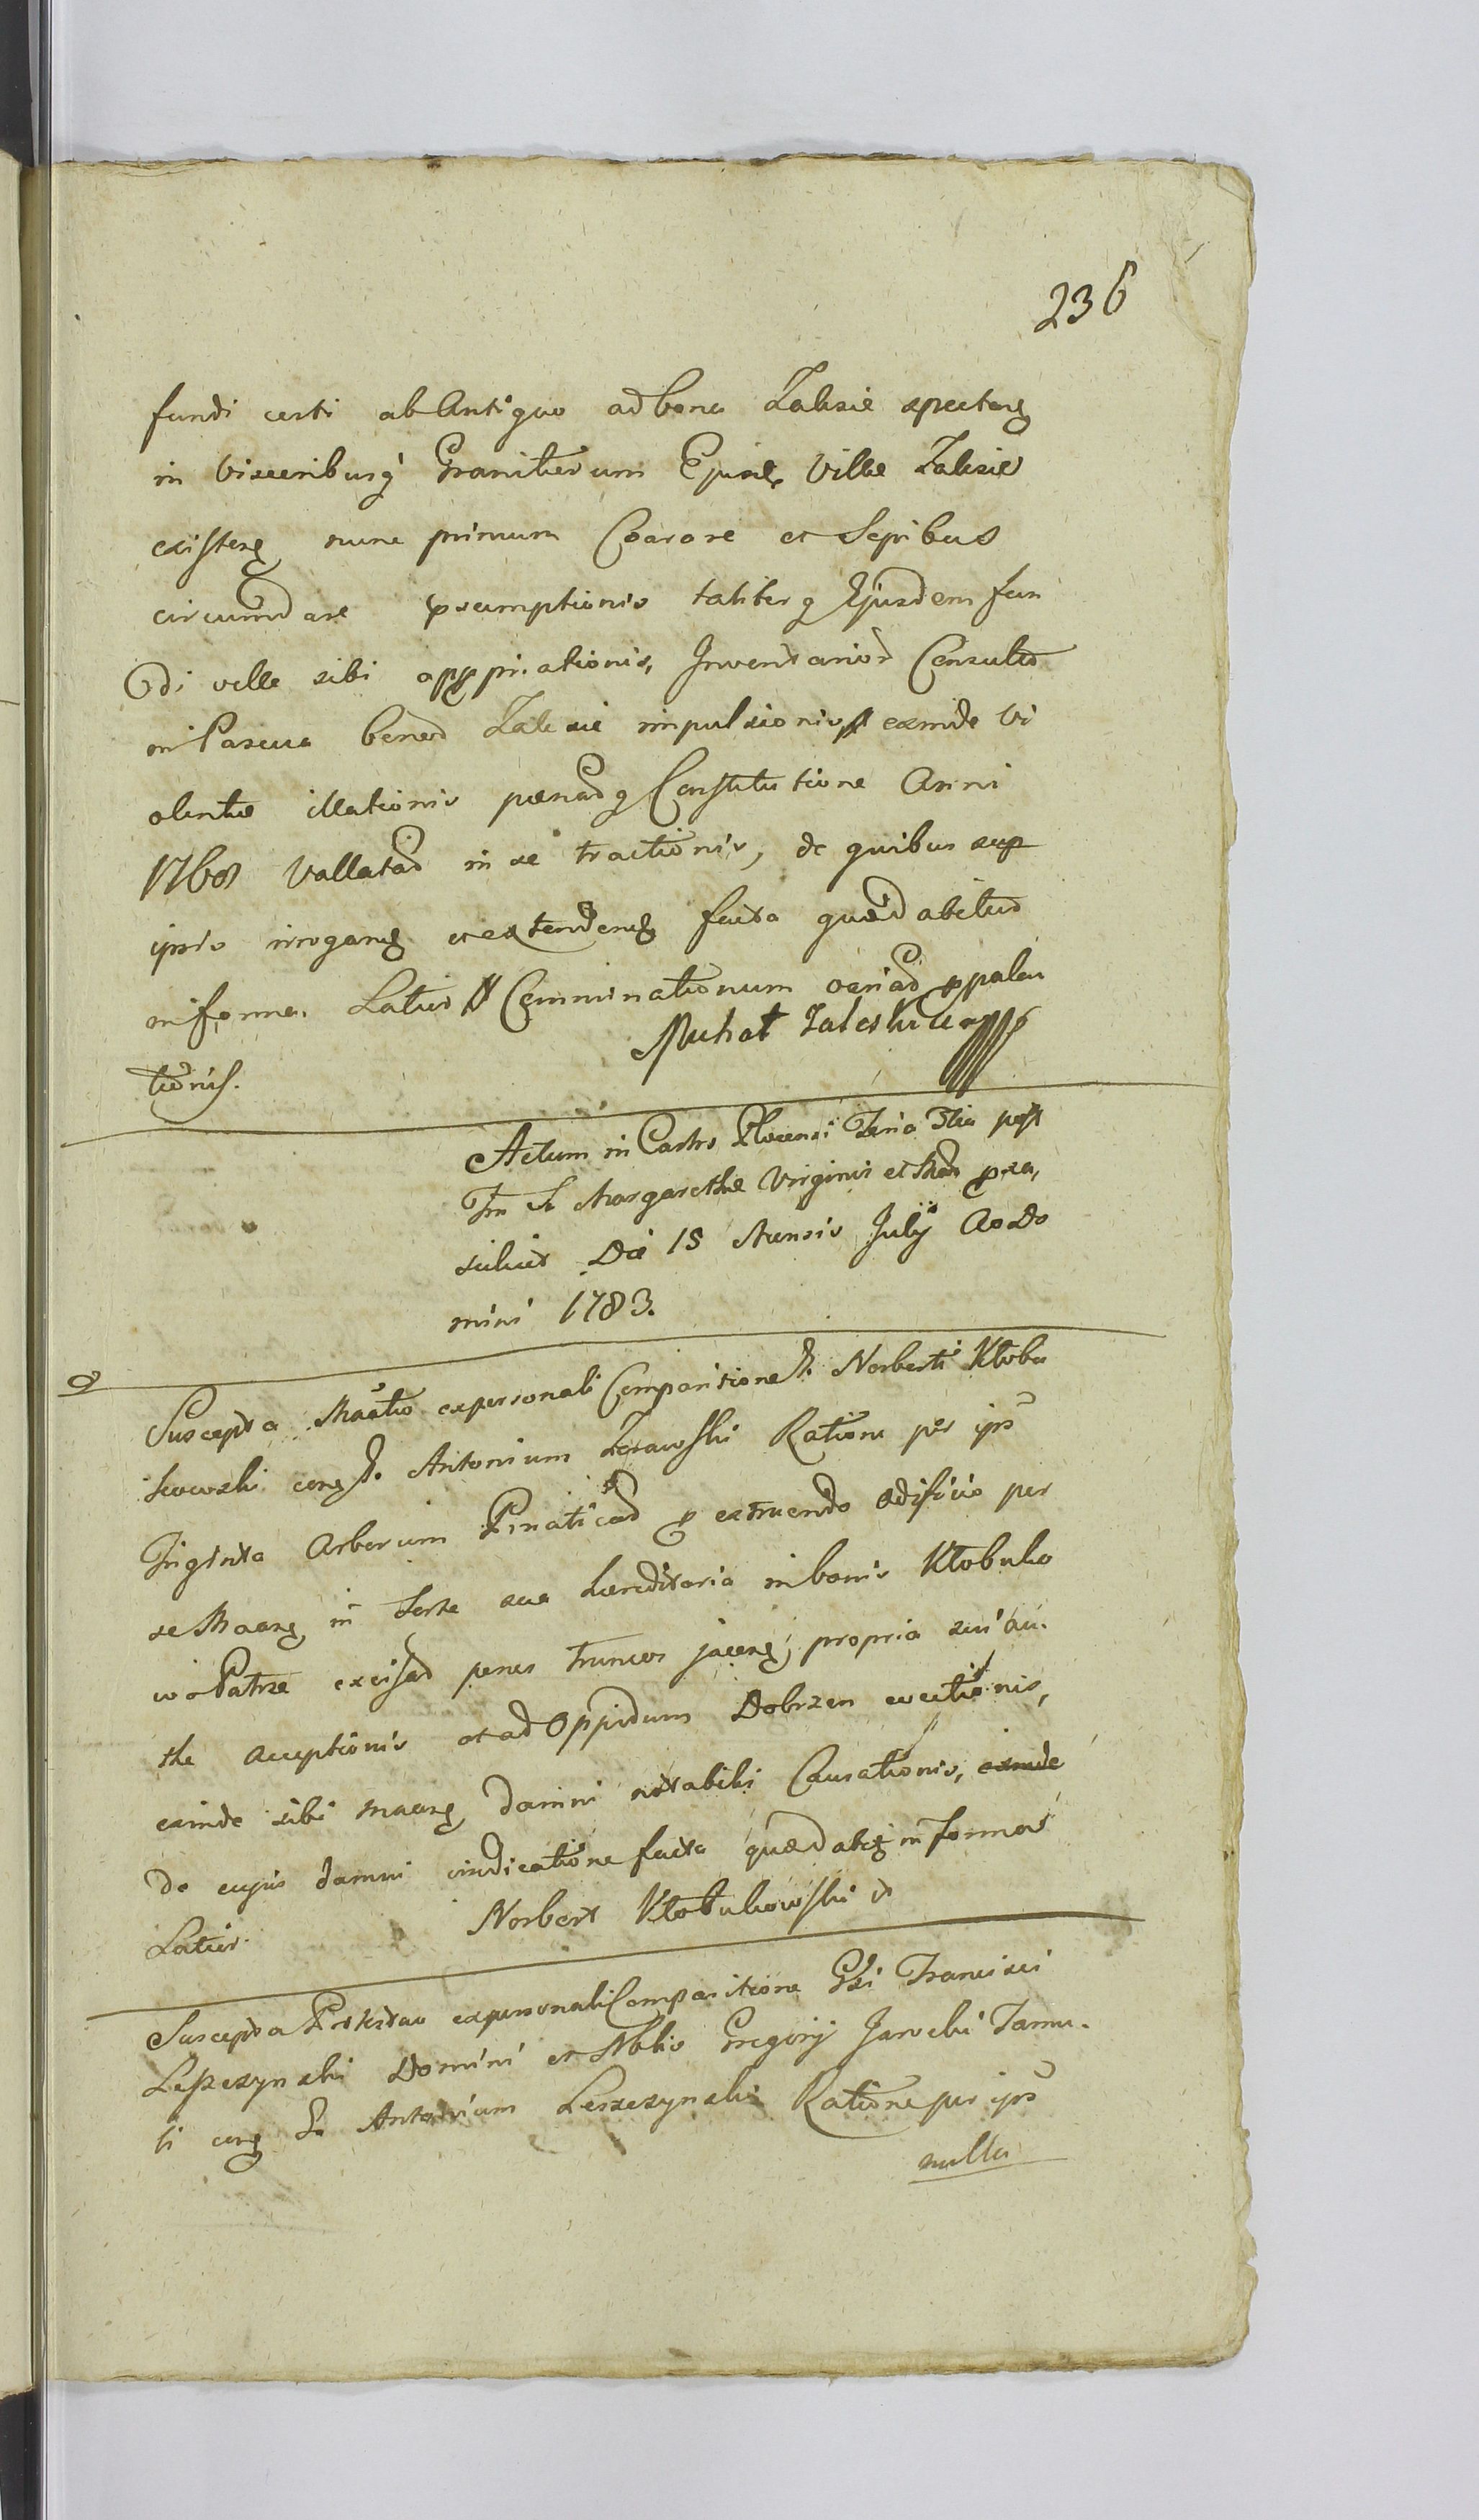 236
fundi certi ab Antiquo ad bona Zalesie spectan
in visceribusq Granitierum Ejusd Villæ Zalesie
existen nunc primum Coarare et Sepibus
circumdare præsumptionis taliterq Ejusdem fun
di velle sibi appropriationis, Inventarior Consulto
in Pascua bonor Zalesie impulsionis exinde Vi
olentiæ illationis pænarq Constitutione Anni
1768 vallatar in se tractionis, de quibus sup
ipsis irrogan et extenden facta quærel abitus
in forma. Latius Comminationum variar propala
tionis.
Michał Zaleski
Actum in Castro Plocensi Feria 3tia post
Fm S Margarethæ Virginis et Mar proxi,
Die 15 Mensis Julij Ao Do
mini 1783.
Suscepta Manlio ex personali Comparitione G. Norberti Kłobu
kowski con G. Antonium Zerawski Ratione per ips
Triginta Arborum Pinaticar pro extruendo ædificio per
se Maan in Sorte sua hæreditaria in bonis Kłobuko
wo Patrze excisar penes truncos jacen, propria sui au.
the acceptionis et ad Oppidum Dobrzen evectionis,
exinde sibi maan damni notabilis Causationis, exinde
de cujus damni vindicatione facta quærel in forma
Latius
Norbert Kłobukowski
Suscepta Protestao ex personali Comparitione Gsi Francisci
Leszczynski Domini et Nblis Gregorij Jarocki Famu.
li con G. Antonium Leszczynski Ratione per ips
nulla